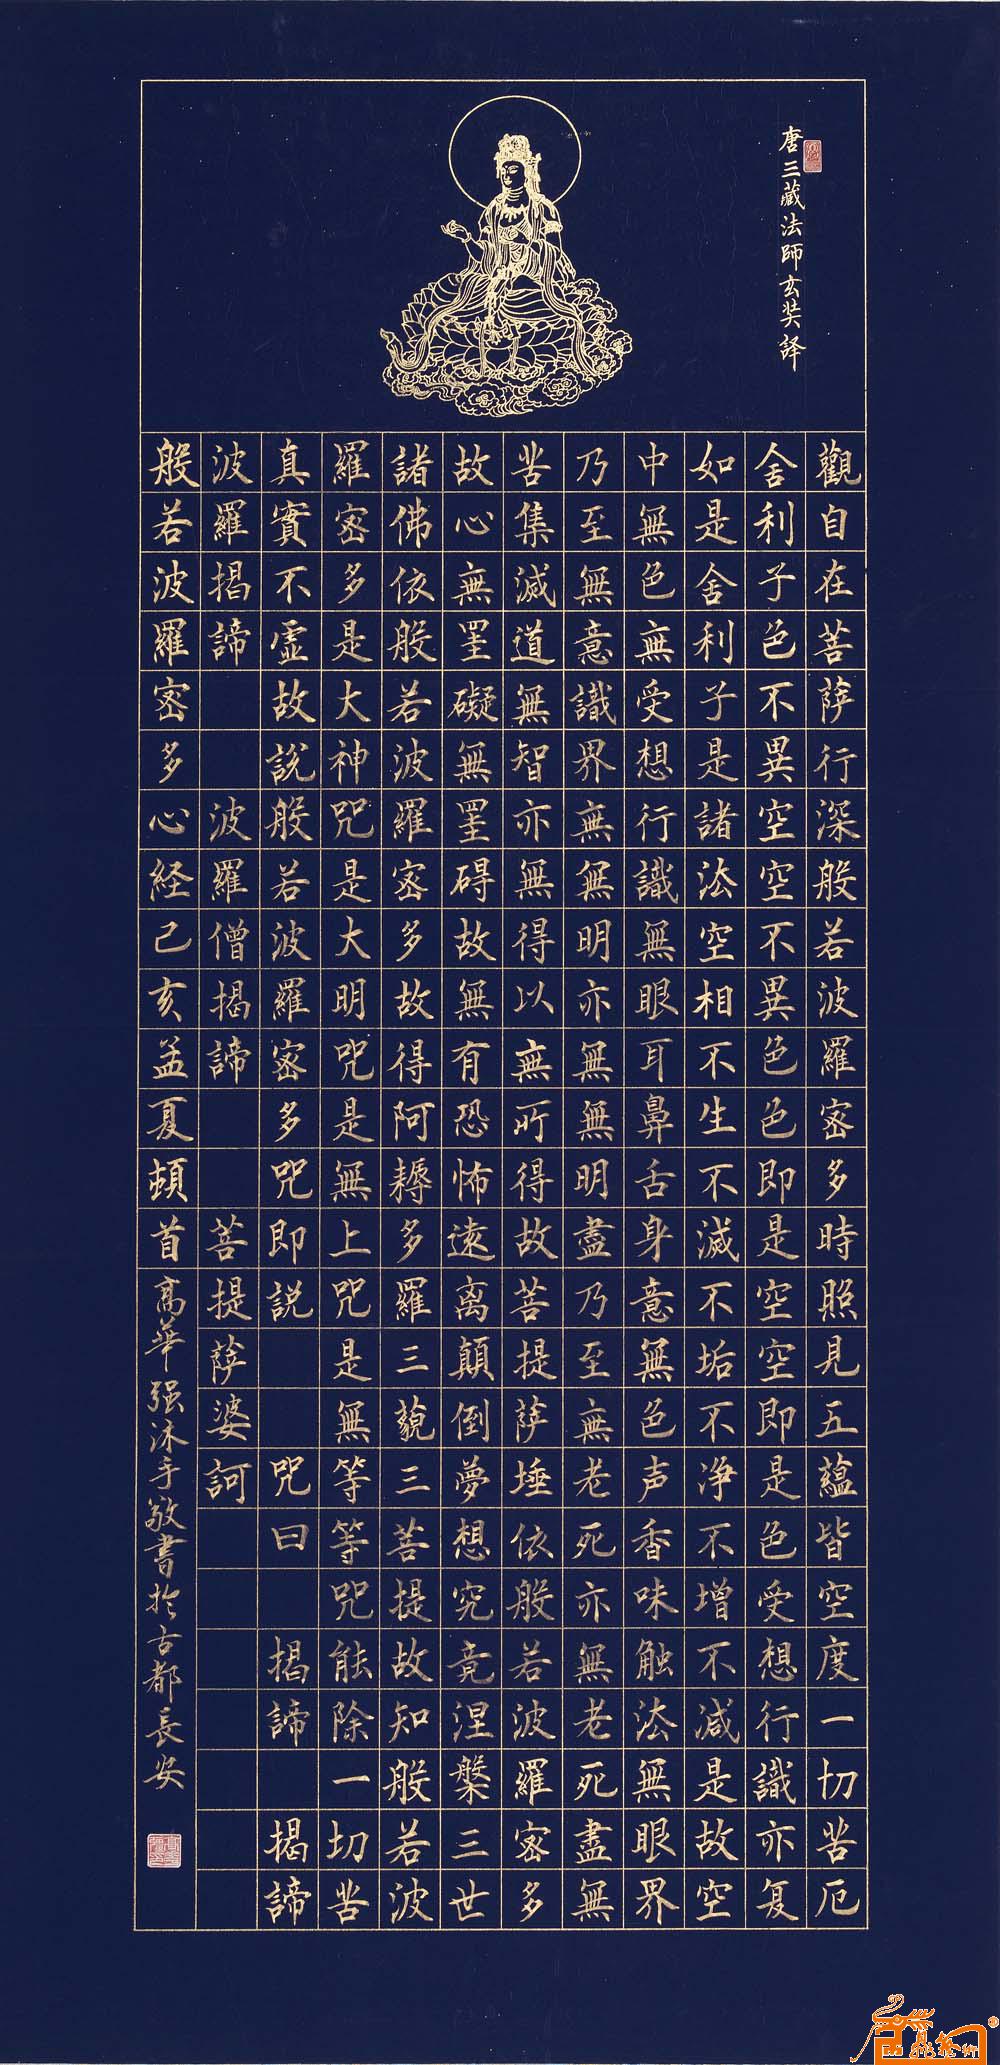 唐三藏法師玄奘譯
觀自在菩薩行深般若波羅密多時照見五蘊皆空度一切苦厄
舍利子色不異空空不異色色即是空空即是色受想行識亦复
如是舍利子是諸法空相不生不滅不垢不净不增不減是故空
中無色無受想行識無眼耳鼻舌身意無色声香味触法無眼界
乃至無意識界無無明亦無無明盡乃至無老死亦無老死盡無
苦集滅道無智亦無得以無所得故菩提薩埵依般若波羅密多
故心無罣礙無罣碍故無有恐怖遠离顛倒夢想究竟涅槃三世
諸佛依般若波羅密多故得阿耨多羅三藐三菩提故知般若波
羅密多是大神咒是大明咒是無上咒是無等等咒能除一切苦
真實不虛故說般若波羅密多咒即説 咒曰 揭諦 揭諦
波羅揭諦 波羅僧揭諦 菩提薩婆訶
般若波羅密多心経己亥孟夏頓首高華强沐手敬書於古都長安